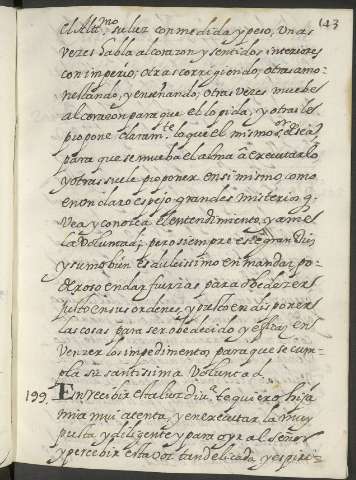 143
el Altmo su luz con medida y peso, unas
veces habla al corazon y sentidos interiores
con imperio; otras corrigiendo; otras amo-
nestando, y enseñando; otras veces muebe
al corazon para que el lo pida, y otras le
propone claramte lo que el mismo Sor desea
para que se mueba el alma à executarlo
y otras suele proponer en si mismo como
en un claro espejo grandes misterios q
vea y conozca el entendimiento, y ame
la voluntad; pero siempre este gran Dios
y sumo bien es dulcissimo en mandar po-
deroso en dar fuerzas para obedezer
justo en sus ordenes, y presto en disponer
las cosas para ser obedecido y efficaz en
venzer los impedimentos, para que se cum-
pla su santissima voluntad
199 En recibir esta luz diva te quiero hija
mia muy atenta, y en executarla muy
presta y diligente y para oyr al Señor
y percebir esta voz tan delicada y espiri-